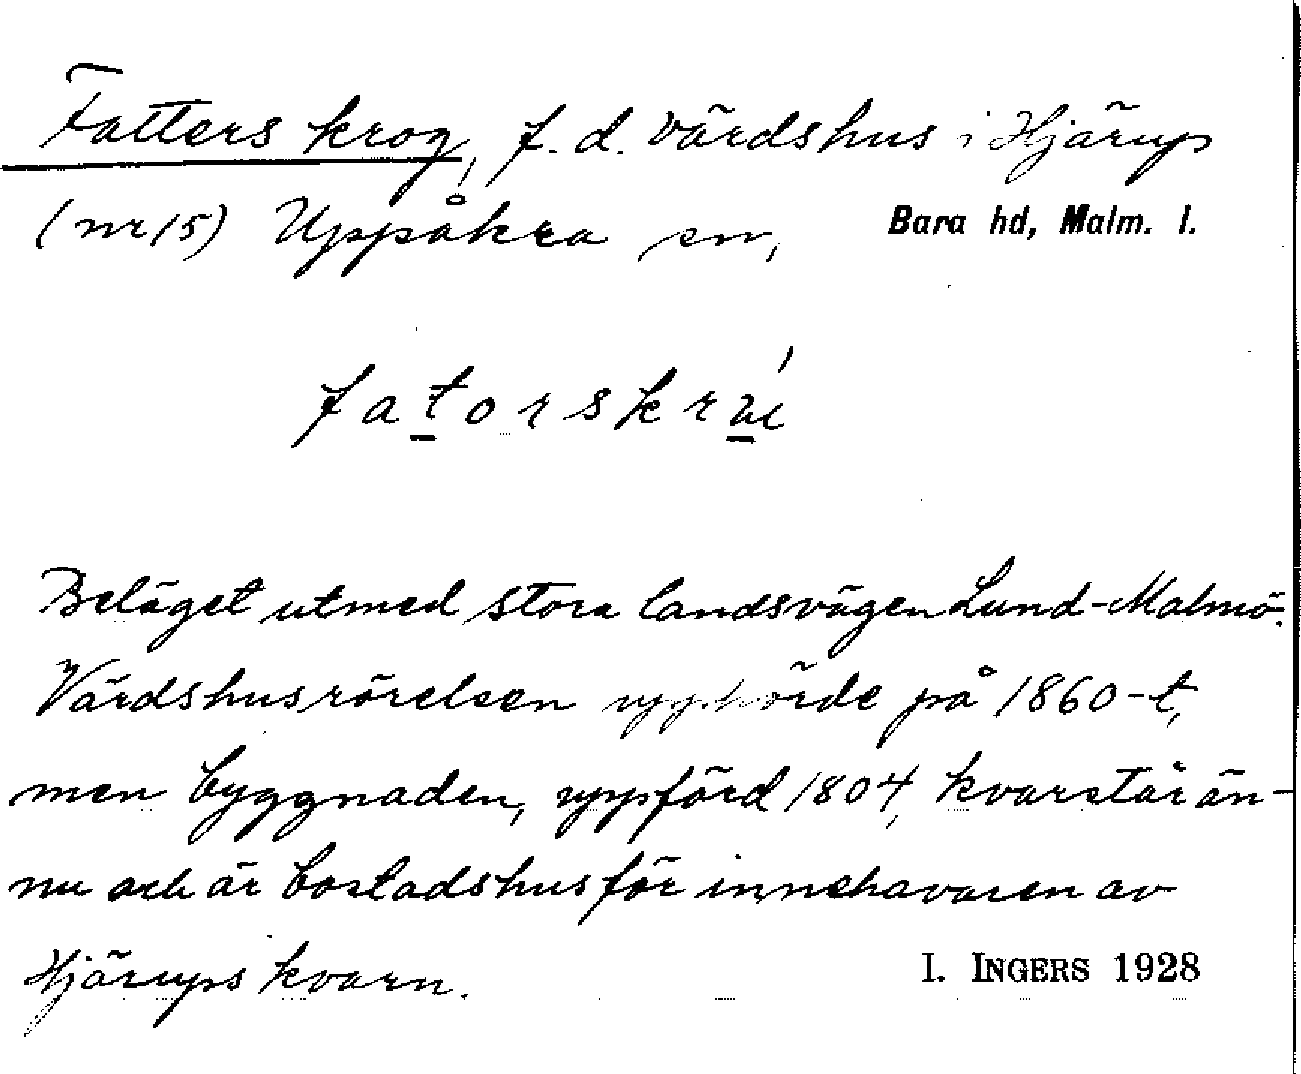 Fatters krog, f. d. värdshus i Hjärup
(nr 15) Uppåkra sn, Bara hd, Malm. l.
Beläget utmed stora landsvägen Lund-Malmö.
Värdshusrörelsen upphörde på 1860-t,
men byggnaden, uppförd 1804, kvarstår än-
nu och är bostadshus för innehavaren av
Hjärups kvarn. I. INGERS 1928